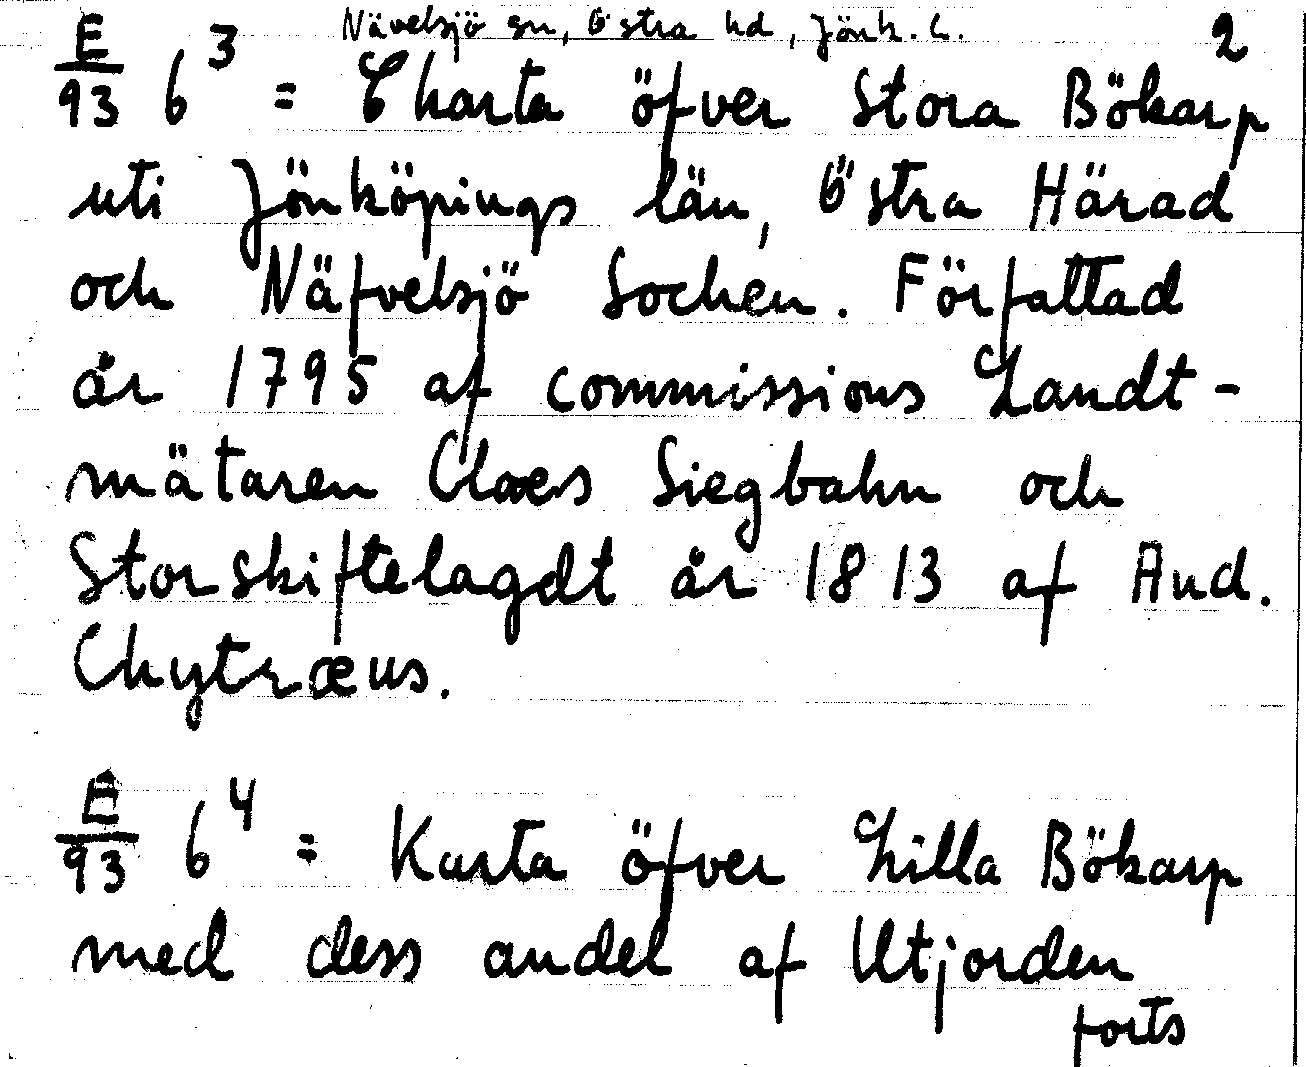 Nävelsjö sn, Östra hd, Jönk. L. 2
E/93 6³ = Charta öfver Stora Bökarp
uti Jönköpings län, Östra Härad
och Näfvelsjö Socken. Författad
år 1795 af commissions Landt-
mätaren Claes Siegbahn och
Storskiftelagdt år 1813 af And.
Chytræus.
E/93 6⁴ = Karta öfver Lilla Bökarp
med dess andel af Utjorden
forts